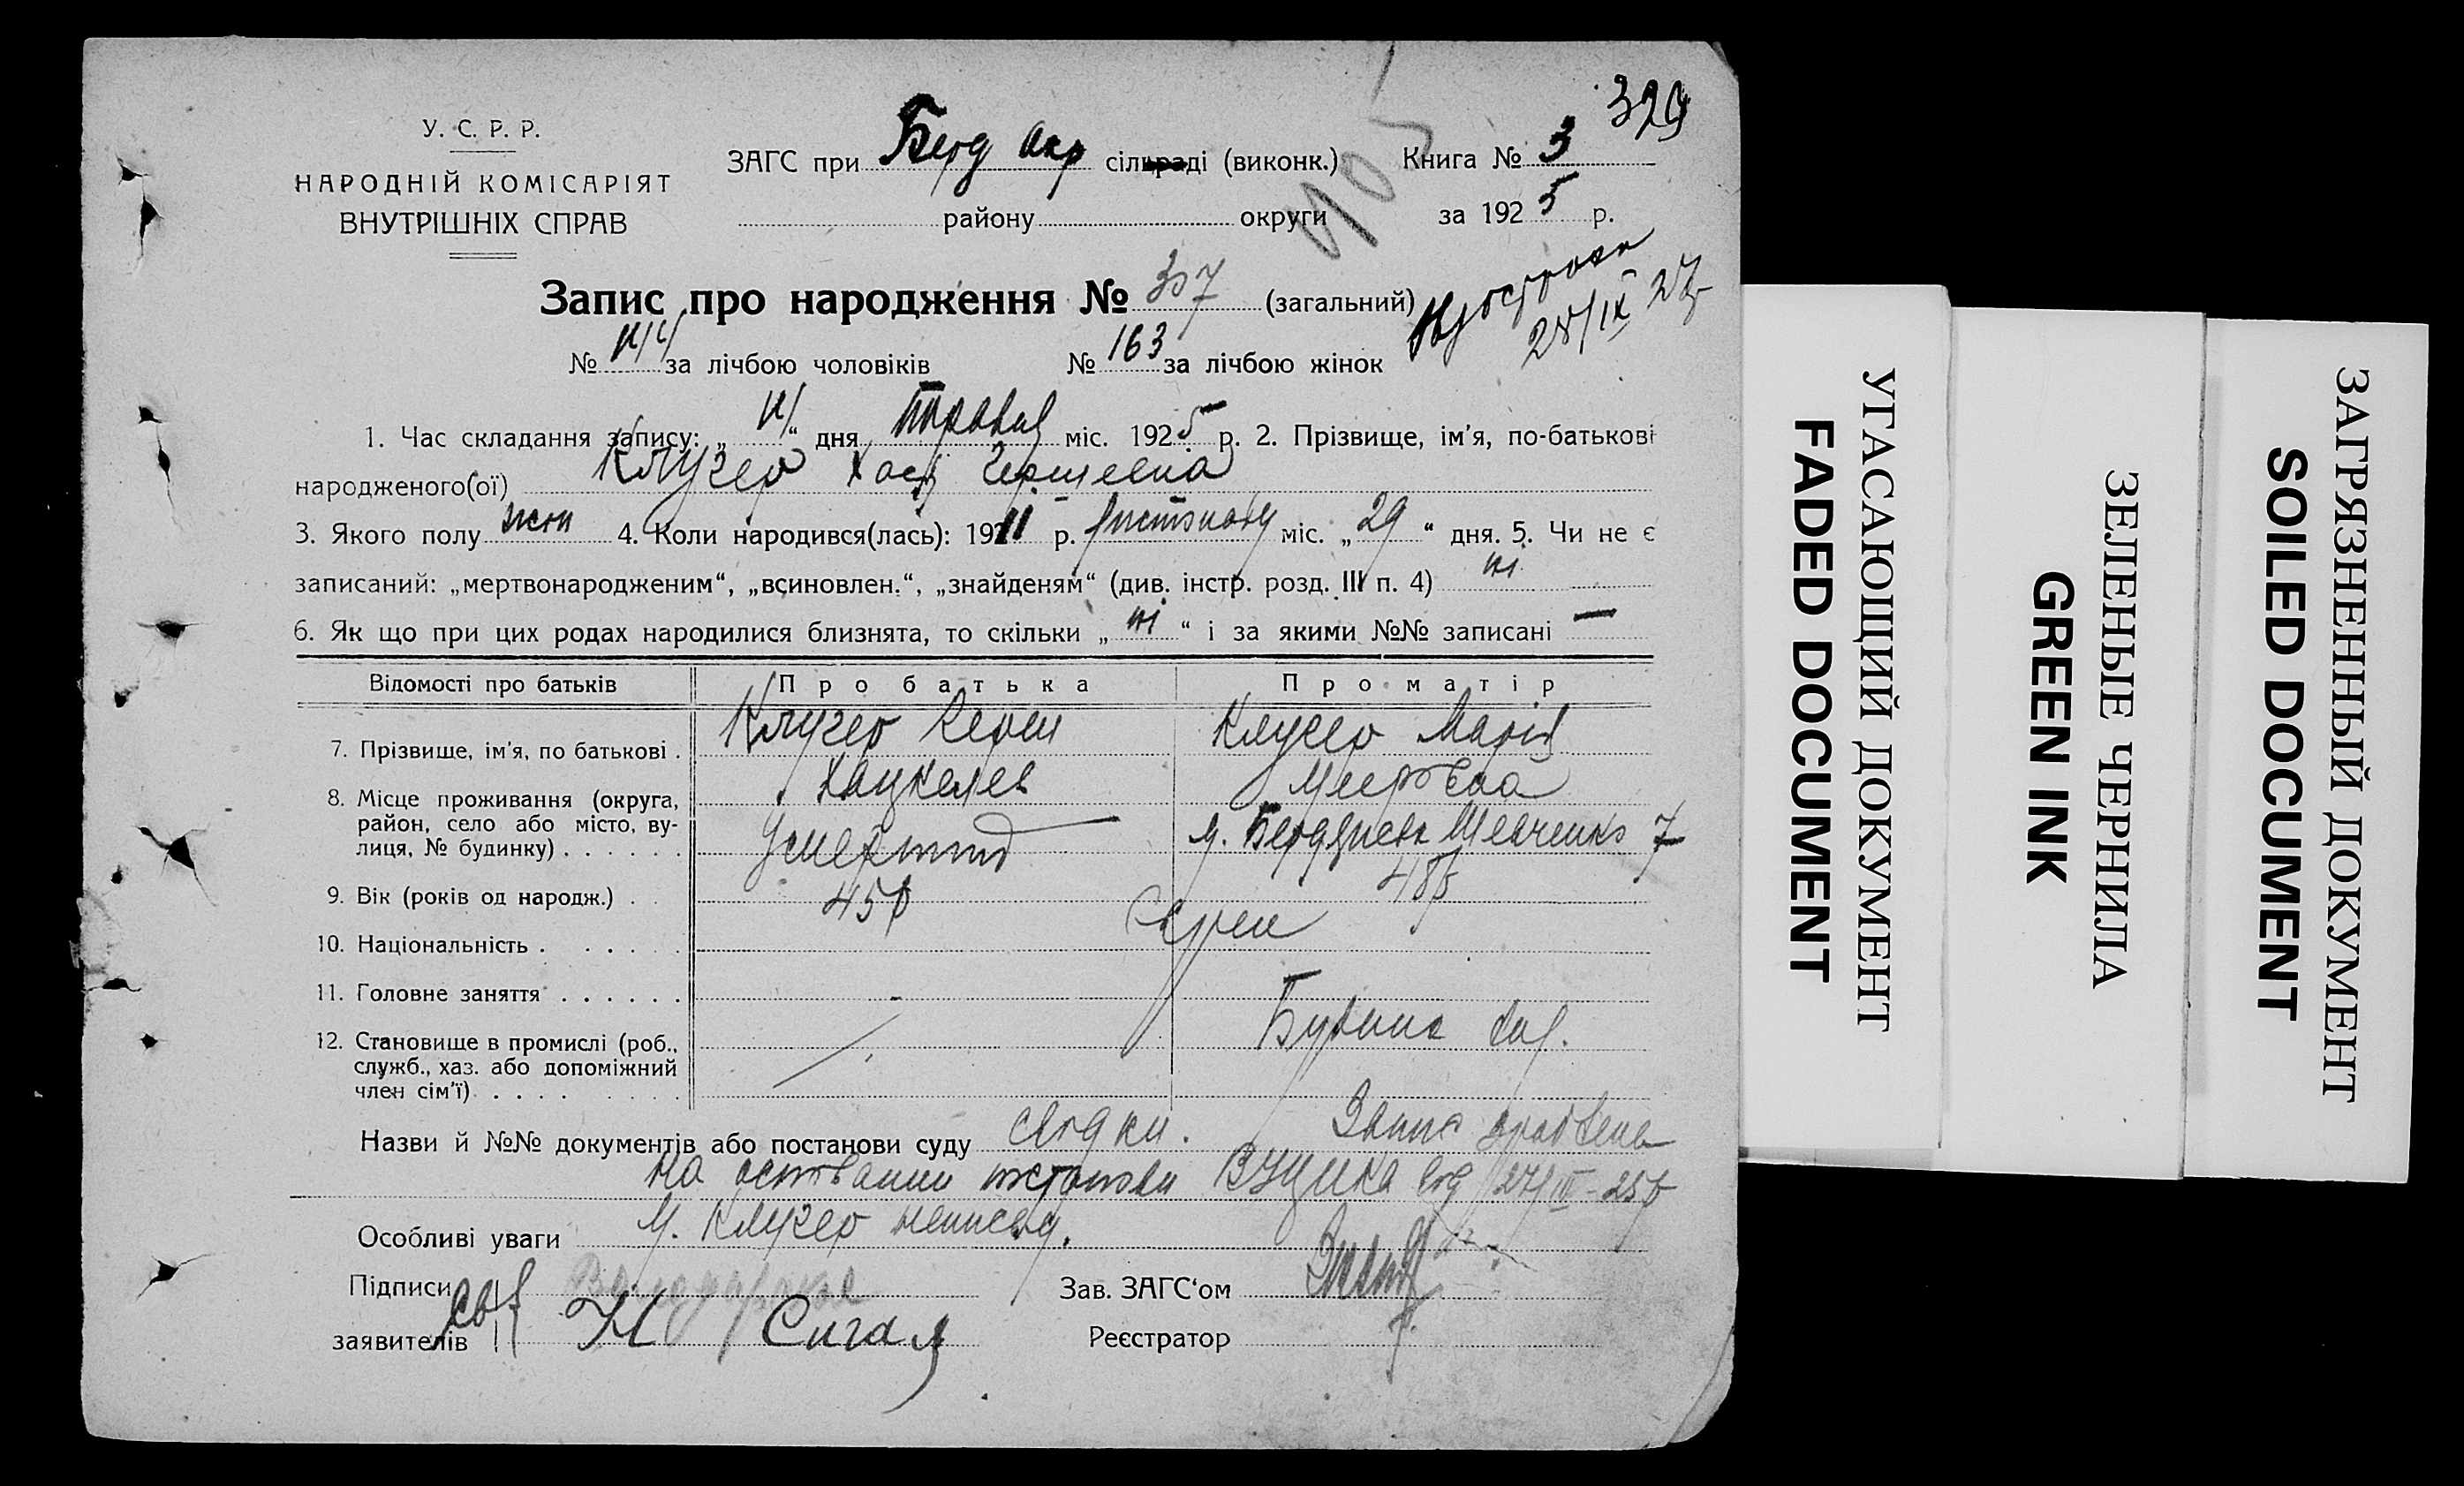 329
У. С. Р. Р.
НАРОДНІЙ КОМІСАРІЯТ
ВНУТРІШНІХ СПРАВ
ЗАГС при Берд Окр сільраді (виконк.) Книга № 3
району округи за 1925 р.
Запис про народження № 307 (загальний)
28/IX 27
№ за лічбою чоловіків № 163 за лічбою жінок
1. Час складання запису: „ “ дня Травня міс. 1925 р. 2. Прізвище, ім’я, по-батькові
народженого(ої) Клугер Хася Гершевна
3. Якого полу жен 4. Коли народився(лась): 1911 р. Листопаду міс. „29“ дня. 5. Чи не є
записаний: „мертвонародженим“, „всиновлен.“, „знайденям“ (див. інстр. розд. III п. 4) ні
6. Як що при цих родах народилися близнята, то скільки „ні“ і за якими №№ записані —
Відомості про батьків Про батька Про матір
7. Прізвище, ім’я, по батькові . Клугер Герш Клугер Марія
Хацкелев Мееровна
8. Місце проживання (округа,
район, село або місто, ву-
лиця, № будинку) . . . . . . Умерший м. Бердянськ Шевченко 7
9. Вік (років од народж.) . . 45р 48р
10. Національність . . . . . Євреи
11. Головне заняття . . . . . .
12. Становище в промислі (роб.,
служб., хаз. або допоміжний
член сім’ї) . . . . . . . .
Назви й №№ документів або постанови суду свідки.
на основании постанови ВУЦИКа від 27/III-25р
Особливі уваги М. Клугер неписьм.
Підписи
заявителів Н Сигал
Зав. ЗАГС‘ом
Реєстратор
УГАСАЮЩИЙ ДОКУМЕНТ
FADED DOCUMENT
ЗЕЛЕНЫЕ ЧЕРНИЛА
GREEN INK
ЗАГРЯЗНЕННЫЙ ДОКУМЕНТ
SOILED DOCUMENT